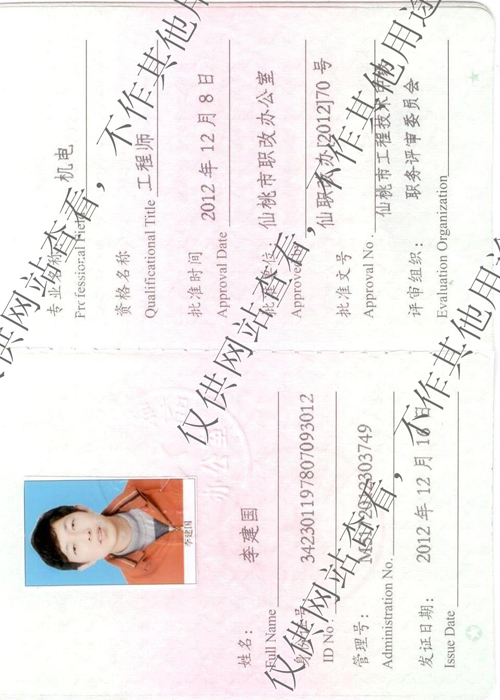 李建国
姓名：李建国
Full Name
身份证号 342301197807093012
ID No.
管理号：
Administration No.
发证日期：2012 年 12 月 10 日
Issue Date
专业名称 机电
Professional Field
资格名称
Qualificational Title 工程师
批准时间 2012 年 12 月 8 日
Approval Date
批准单位 仙桃市职改办公室
Approved
批准文号 仙职改办[2012]70 号
Approval No.
仙桃市工程技术
评审组织：职务评审委员会
Evaluation Organization
仅供网站查看，不作其他用途
仅供网站查看，不作其他用途
仅供网站查看，不作其他用途